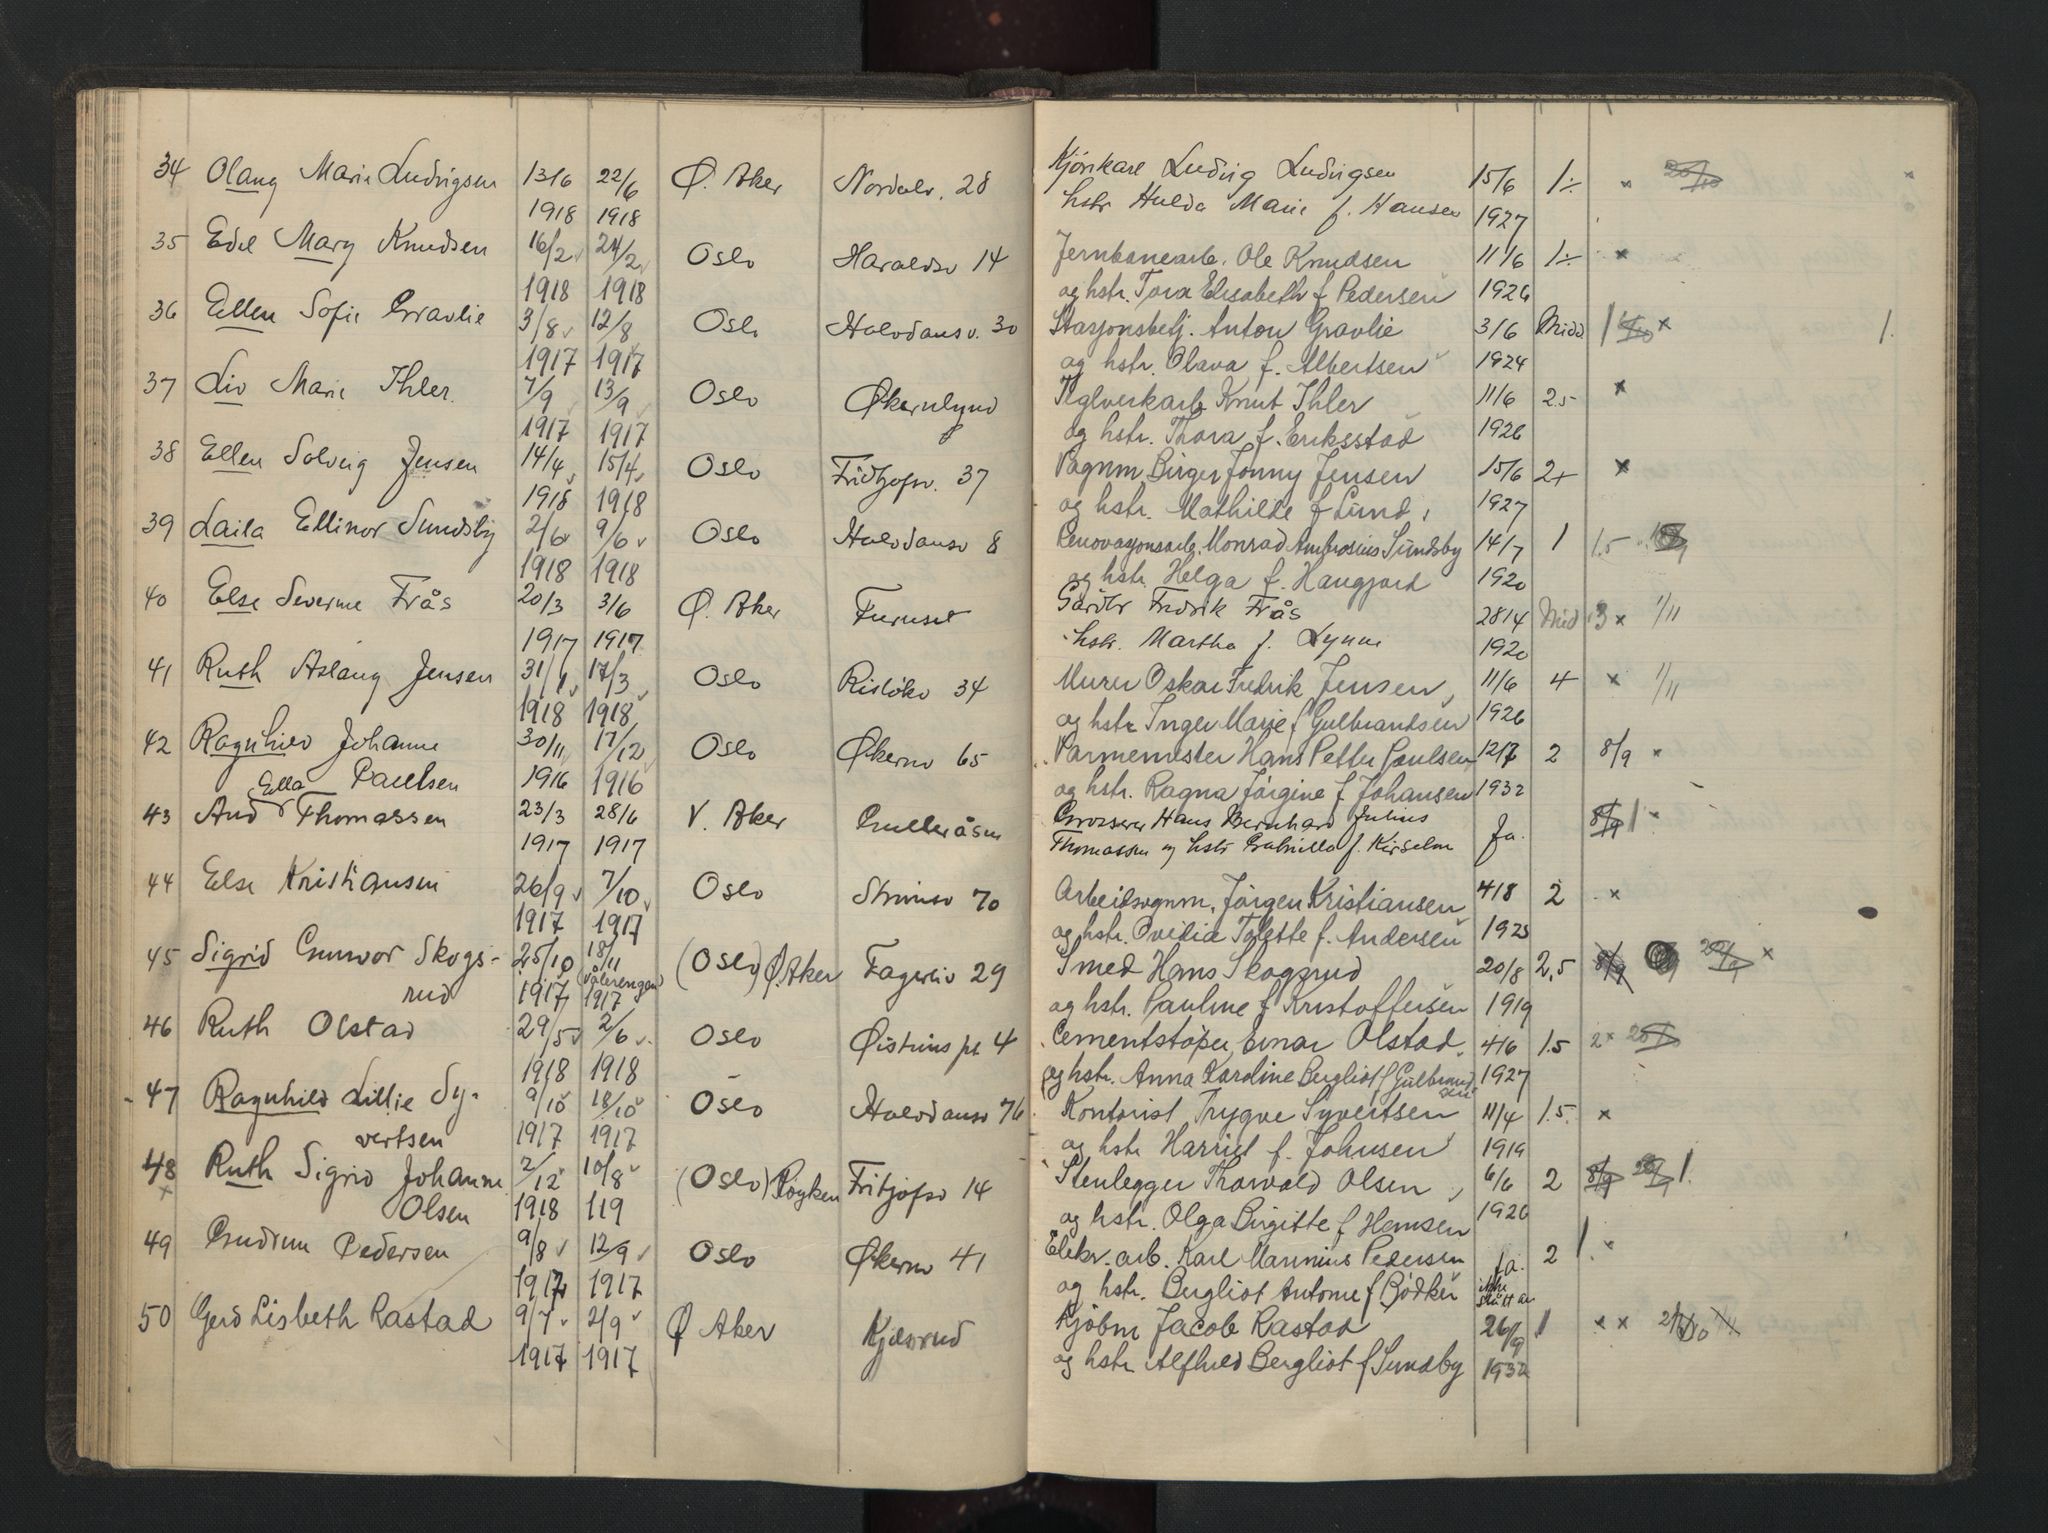 34 Olaug Marie Ludvigsen 13/6 22/6 Ø. Aker Nordalv. 28 Kjörekarl Ludvig Ludvigsen 15/6 1÷ x
1918 1918 hstr Hulda Marie f. Hansen 1927
35 Edel Mary Knudsen 16/2 24/2 Oslo Haraldsv 14 Jernbanearb. Ole Knudsen 11/6 1÷ x
1918 1918 og hstr. Tora Elisabeth f. Pedersen 1926
36 Ellen Sofie Gravlie 3/8 12/8 Oslo Halvdansv. 30 Stasjonsbetj. Anton Gravlie 3/6 Midd 1 x 1.
1917 1917 og hstr. Olava f. Albertsen 1924
37 Liv Marie Ihler. 7/9 13/9 Oslo Økernlynd Teglverkarb Knut Ihler 11/6 2.5 x
1917 1917 og hstr. Thora f. Eriksstad 1926
38 Ellen Solveig Jensen 14/4 15/4 Oslo Fridtjofsv. 37 Vognm. Birger Jonny Jensen 15/6 2+ x
1918 1918 og hstr. Mathilde f Lund 1927
39 Laila Ellinor Sundsby 2/6 9/6 Oslo Halvdansv 8 Renovasjonsarb. Monrad Ambrosius Sundsby 14/7 1 1.5
1918 1918 og hstr. Helga f. Haugjord 1920
40 Else Severine Frås 20/3 3/6 Ø. Aker Furuset Gårdbr Fredrik Frås 28/4 Mid 3 x 1/11
1917 1917 hstr. Martha f. Lynne 1920
41 Ruth Aslaug Jensen 31/1 17/3 Oslo Rislökv 34 Murer Oskar Fredrik Jensen, 11/6 4 x 1/11
1918 1918 og hstr Inger Marie f Gulbrandsen 1926
42 Ragnhild Johanne 30/11 17/12 Oslo Økernv 65 Varmemester Hans Petter Paulsen 12/7 2 8/9 x
Paulsen 1916 1916 og hstr. Ragna Jörgine f Johansen 1932
43 Aud Ella Thomassen 23/3 28/6 V. Aker Gulleråsen Grosserer Hans Bernhard Julius Ja. 8/9 1
1917 1917 Thomassen og hstr Gabriella f.
44 Else Kristiansen 26/9 7/10 Oslo Strømsv 70 Arbeidsognm. Jörgen Kristiansen 4/8 2 x
1917 1917 og hstr. Ovidia Tolette f. Andersen 1925
45 Sigrid Gunvor Skogs- 25/10 18/11 (Oslo) Ø. Aker Fagerliv 29 Smed Hans Skogsrud 20/8 2.5 8/9 x
rud 1917 (Vålerengen) 1917 og hstr. Pauline f Kristoffersen 1919
46 Ruth Olstad 29/5 2/6 Oslo Øisteins pl 4 Cementstøper Einar Olstad. 4/6 1.5 2 x
1918 1918 og hstr. Anna Karoline Bergliot f Gulbrandsen 1927
47 Ragnhild Lillie Sy- 9/10 18/10 Oslo Halvdansv 76 Kontorist Trygve Syvertsen 11/4 1.5 x
vertsen 1917 1917 og hstr Harriet f. Johnsen 1919
48 Ruth Sigrid Johanne 2/12 10/8 (Oslo) Röyken Fritjofsv 14 Stenlegger Thorvald Olsen, 6/6 2 8/9 1.
x Olsen 1918 119 og hstr. Olga Birgitte f Hansen 1926
49 Gudrun Pedersen 9/8 12/9 Oslo Økernv 41 Elekr. arb. Karl Marinius Pedersen ja. 2 1. x
1917 1917 og hstr. Bergliot Antonie f Bödker ikke
50 Gerd Lisbeth Rastad 9/7 2/9 Ø Aker Kjelsrud Kjöbm Jacob Rastad 26/9 1 x x
1917 1917 og hstr Alfhild Bergliot f Sundby 1932